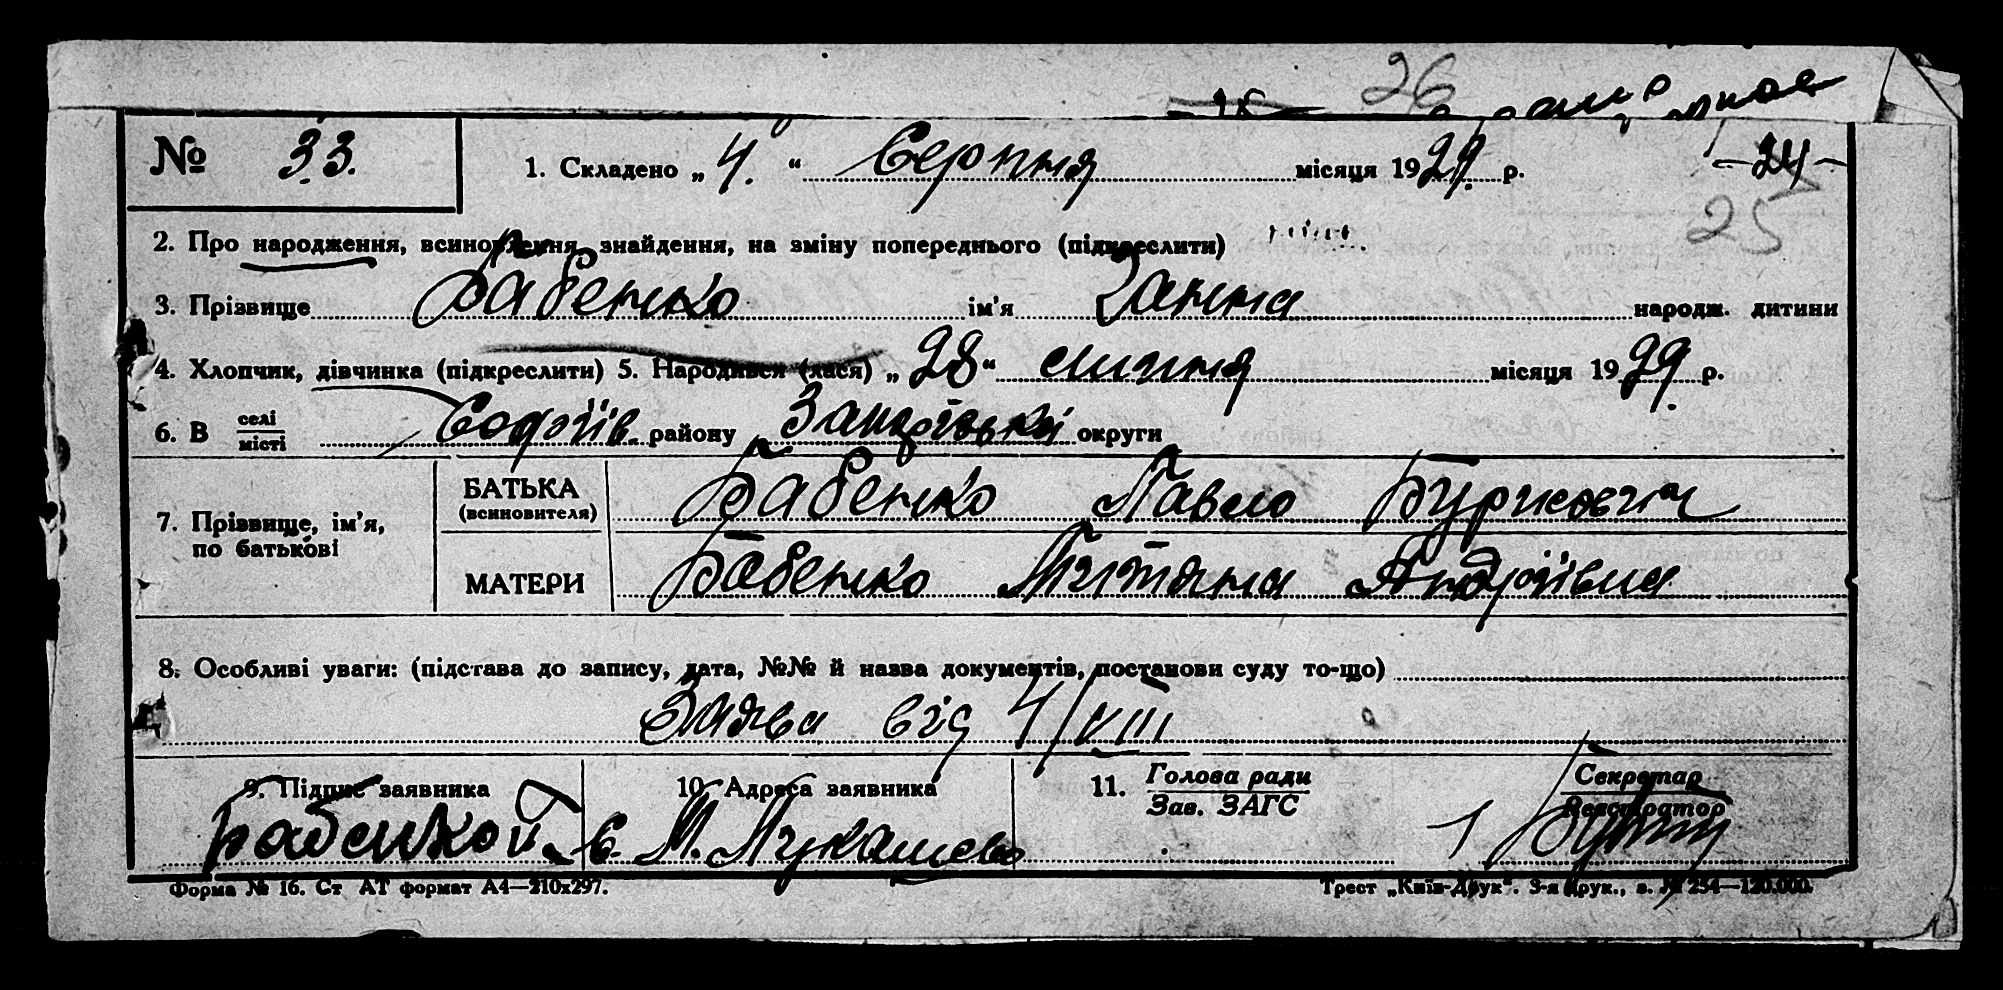 26
№ 33. 1. Складено „ 4. “ Серпня місяця 1929. р. -24-
25
2. Про народження, всиновлення, знайдення, на зміну попереднього (підкреслити)
3. Прізвище Бабенко ім'я Ганна народж. дитини
4. Хлопчик, дівчинка (підкреслити) 5. Народився (лася) „ 28 “ липня місяця 1929. р.
6. В селі/місті Софіїв. району Запорізької округи
7. Прізвище, ім'я, по батькові
БАТЬКА (всиновителя) Бабенко Павло
МАТЕРИ Бабенко Титяна Андріївна
8. Особливі уваги: (підстава до запису, дата, №№ й назва документів, постанови суду то-що)
Заява від 4/VIII
9. Підпис заявника 10. Адреса заявника 11. Голова ради / Зав. ЗАГС Секретар / Реєстратор
Бабенко с. М. Лукашево
Форма № 16. Ст АТ формат А4—210х297. Трест „Київ-Друк“. 3-я друк., з. № 254—120.000.